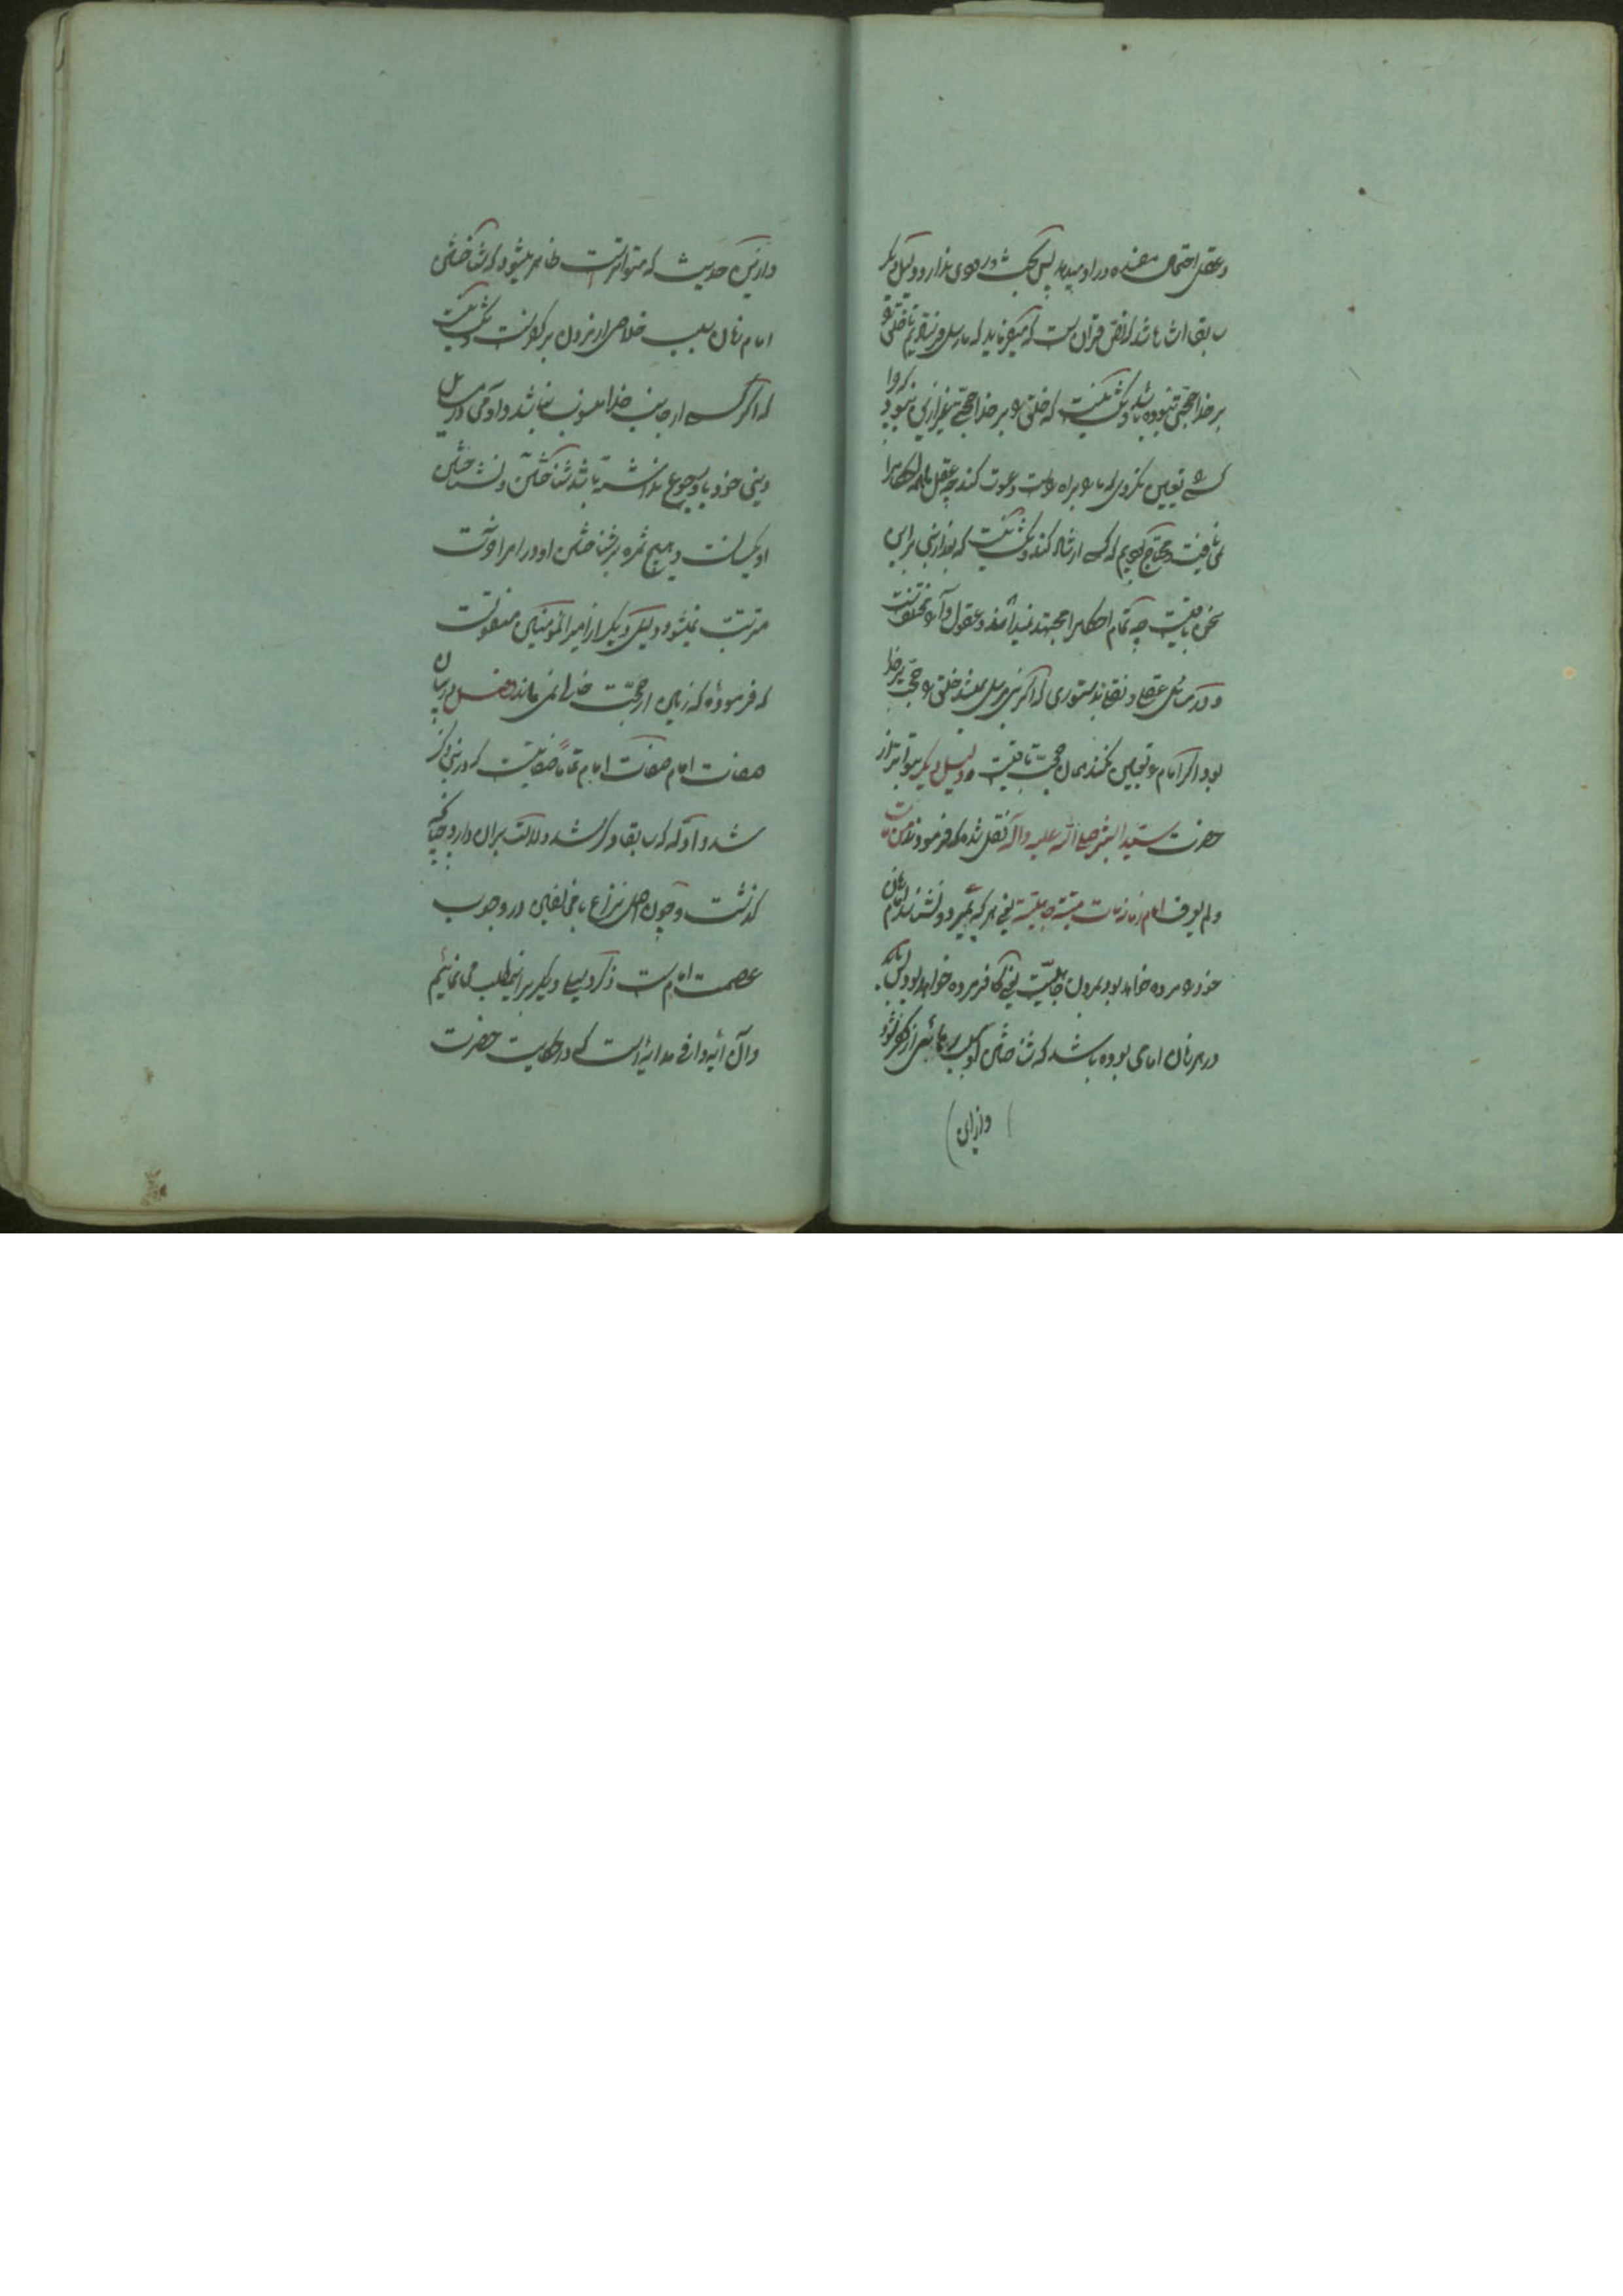 و عقل احتمال مفسده در او میدهد پس بحث در دعوی ندارد و دلیل دیگر
سابق اشاره شد که نص قرآن است که میفرماید که ما رسل فرستادیم تا خلق را
بر خدا حجتی نبوده باشد و شکی نیست که خلق را بر خدا حجتی غیر ازین نبود که چرا
کسی تعیین نکردی که ما را براه راست دعوت کند چه عقل ما همه احکام را
نمی یافت و محتاج بودیم که کسی ارشاد کند و شکی نیست که بعد از نبی برای این
سخن باقیست چه تمام احکام را مجتهد نمیدانند و عقول و آراء مختلفست
و در مسائل عقلی و نقلی بدستوری که اگر نبی مرسل نمیشد خلق را حجت بر خدا
بود اگر امام را تعیین نکند همان حجت باقیست و دلیل دیگر بتواتر از
حضرت سید البشر صلی الله علیه و آله نقل شده که فرمودند من مات
و لم یعرف امام زمانه مات میتة جاهلیة یعنی هر که بمیرد و نشناسد امام زمان
خود را مرده خواهد بود بمردن جاهلیت یعنی کافر مرده خواهد بود پس باید که
در هر زمان امامی بوده باشد که شناختن او سبب رهائی از کفر شود
(واز این)
و از این حدیث که متواتر است ظاهر میشود که شناختن
امام زمان سبب خلاصی از مردن بر کفر است و شکی نیست
که اگر کسی از جانب خدا منصوب نباشد و آدمی در مسائل
دینی خود باو رجوع نداشته باشد شناختن و نشناختن
او یکسانست و هیچ ثمره بر شناختن او در امر آخرت
مترتب نمیشود و دلیل دیگر از امیر المؤمنین منقولست
که فرموده که زمین از حجت خدا خالی نمی ماند فصل در بیان
صفات امام صفات امام تماما صفاتیست که در نبی ذکر
شد و ادله که سابقا ذکر شد دلالت بر آن دارد چنانچه
گذشت و چون اصل نزاع با مخالفین در وجوب
عصمت امام است ذکر دلیلی دیگر بر این مطلب می نمائیم
و آن آیه وافی هدایه است که در حکایت حضرت